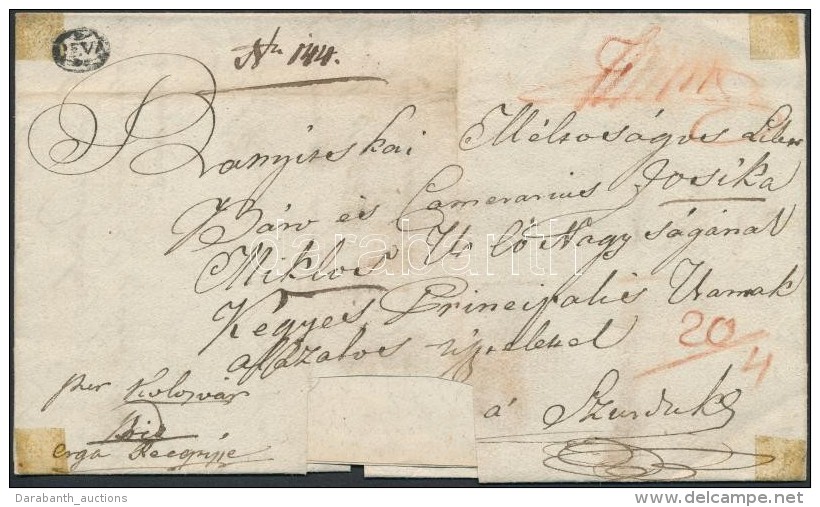 DEVA
Nro 144.
Branyitskai Méltoságos Liber
Báro és Camerarius Josika
Miklos Ur eő Nagyságának
Kegyes Principalis Uramak
alázatos
20/4
per Kolosvár
erga Recepisse
á Szurduk
darabanth
Darabanth_auctions
www.delcampe.net